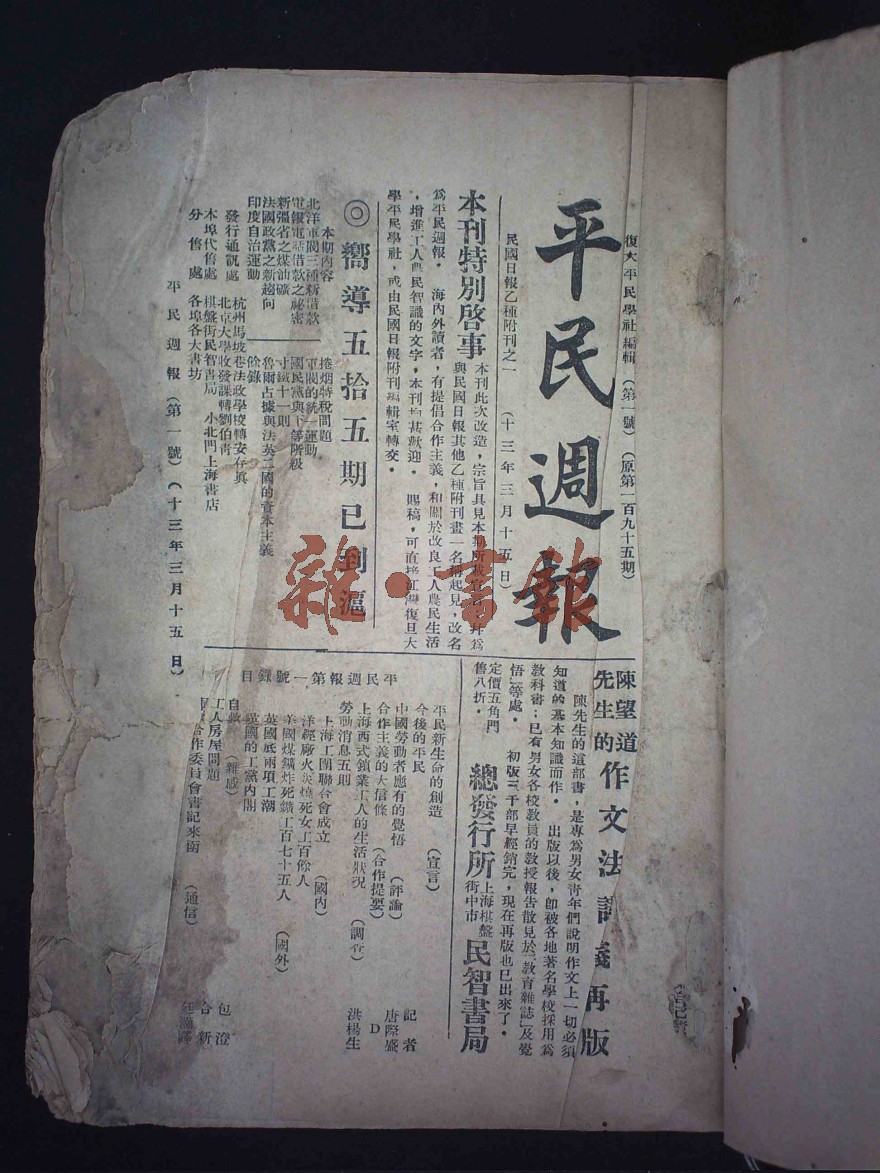 復大平民學社編輯 (第一號) (原第一百九十五期)
平民週報
民國日報乙種附刊之一 (十三年三月十五日)
本刊特別啓事
本刊此次改造，宗旨具見本
與民國日報其他乙種附刊畫一名稱起見，改名
爲平民週報。海內外讀者，有提倡合作主義，和關於改良工人農民生活
，增進工人農民智識的文字，本刊均甚歡迎。賜稿，可直接江灣復旦大
學平民學社，或由民國日報附刊編輯室轉交。
◎嚮導五拾五期已到滬
本期內容
北洋軍閥三種新借款
電報電話借款之祕密
新彊省之煤油礦
法國政黨之新趨向
印度自治運動
捲烟特稅問題
軍閥的統一運動
國民黨與下等階級
寸鐵十一則
魯爾占據與法英二國的資本主義
餘錄
發行通訊處 杭州馬坡巷法政學校轉安存真
北京大學收發課轉劉伯青
本埠代售處 棋盤街民智書局 小北門上海書店
分售處 各埠各大書坊
平民週報 (第一號) (十三年三月十五日)
陳望道先生的作文法講義再版
陳先生的這部書，是專爲男女青年們說明作文上一切必須
知道的基本知識而作。出版以後，卽被各地著名學校採用爲
教科書；已有男女各校教員的教授報告散見於「教育雜誌」及覺
悟」等處。初版二千部早經銷完，現在再版也已出來了。
定價五角門
售八折。
總發行所 上海棋盤街中市 民智書局
平民週報第一號錄目
平民新生命的創造 (宣言) 記者
今後的平民 唐際盛
中國勞動者應有的覺悟 (評論) D
合作主義的大信條 (合作提要)
上海西式鎖業工人的生活狀況 (調查) 洪楊生
勞動消息五則
上海工團聯合會成立 (國內)
洋經廠火災燒死女工百餘人
美國煤鑛炸死鑛工百七十五人 (國外)
英國底兩項工潮
英國的工黨內閣
自救 (雜感) 包澄
工人房屋問題 合新
合作委員會書記來函 (通信)
雜·書館